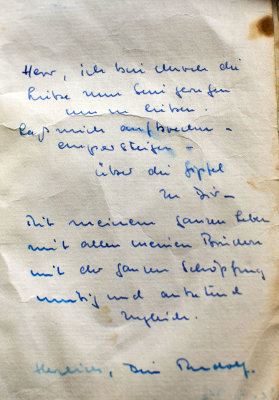 Herr, ich bin durch die
Liebe zum Sein gerufen
um zu lieben.
Laß mich aufbrechen –
emporsteigen –
über die Gipfel
zu Dir –
Mit meinem ganzen Leben
mit allen meinen Brüdern
mit der ganzen Schöpfung
mutig und anbetend
zugleich.
Herzlich, Dein Rudolf.